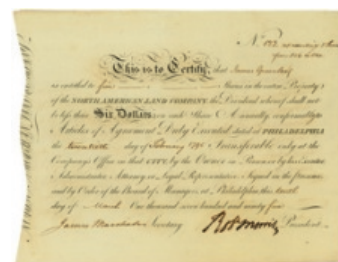 This is to Certify, that James Greenleaf
is entitled to five Shares in the entire Property
of the NORTH AMERICAN LAND COMPANY, the Dividend whereof shall not
be less than Six Dollars on each Share Annually conformably to
Articles of Agreement Duly Executed dated at PHILADELPHIA
the twentieth day of February 1795 Transferable only at the
Company's Office in that CITY, by the Owner in Person or by his Executor
Administrator Attorney or Legal Representative Signed in the presence
and by Order of the Board of Managers at Philadelphia this tenth
day of March One thousand seven hundred and ninety five
James Marshall Secretary Robt Morris President